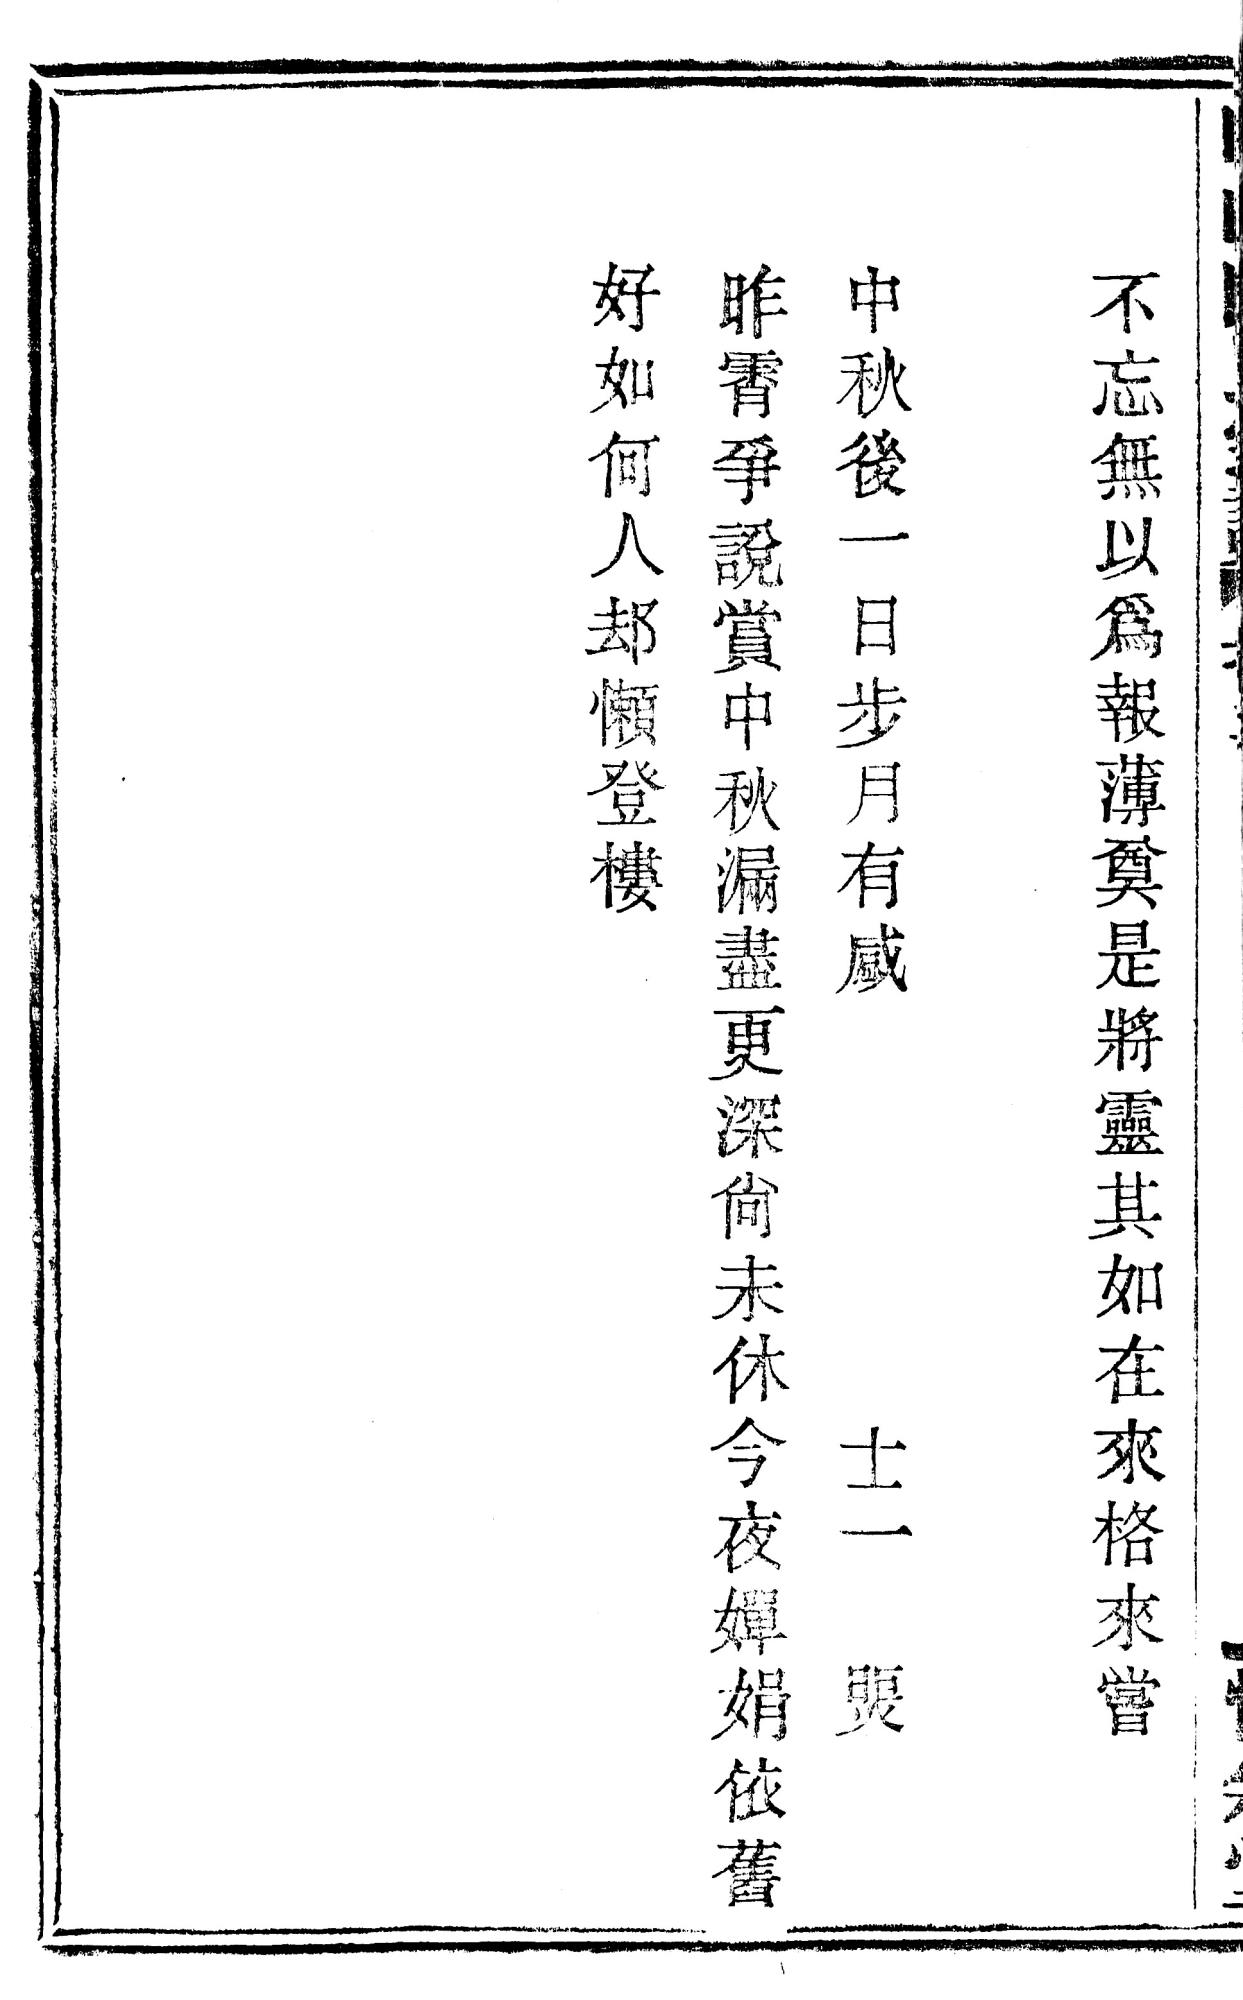 不忘無以爲報薄奠是將靈其如在來格來嘗
中秋後一日步月有感 士一
昨霄爭說賞中秋漏盡更深尙未休今夜嬋娟依舊
好如何人却懶登樓